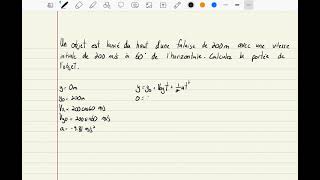 Un objet est lancé du haut d'une falaise de 200m avec une vitesse
initiale de 200 m/s à 60° de l'horizontale. Calculez la portée de
l'objet.
y = 0m
y₀ = 200m
Vx = 200cos60 m/s
Vy₀ = 200sin60 m/s
a = -9.81 m/s²
y = y₀ + Vy₀t + ½at²
0 =